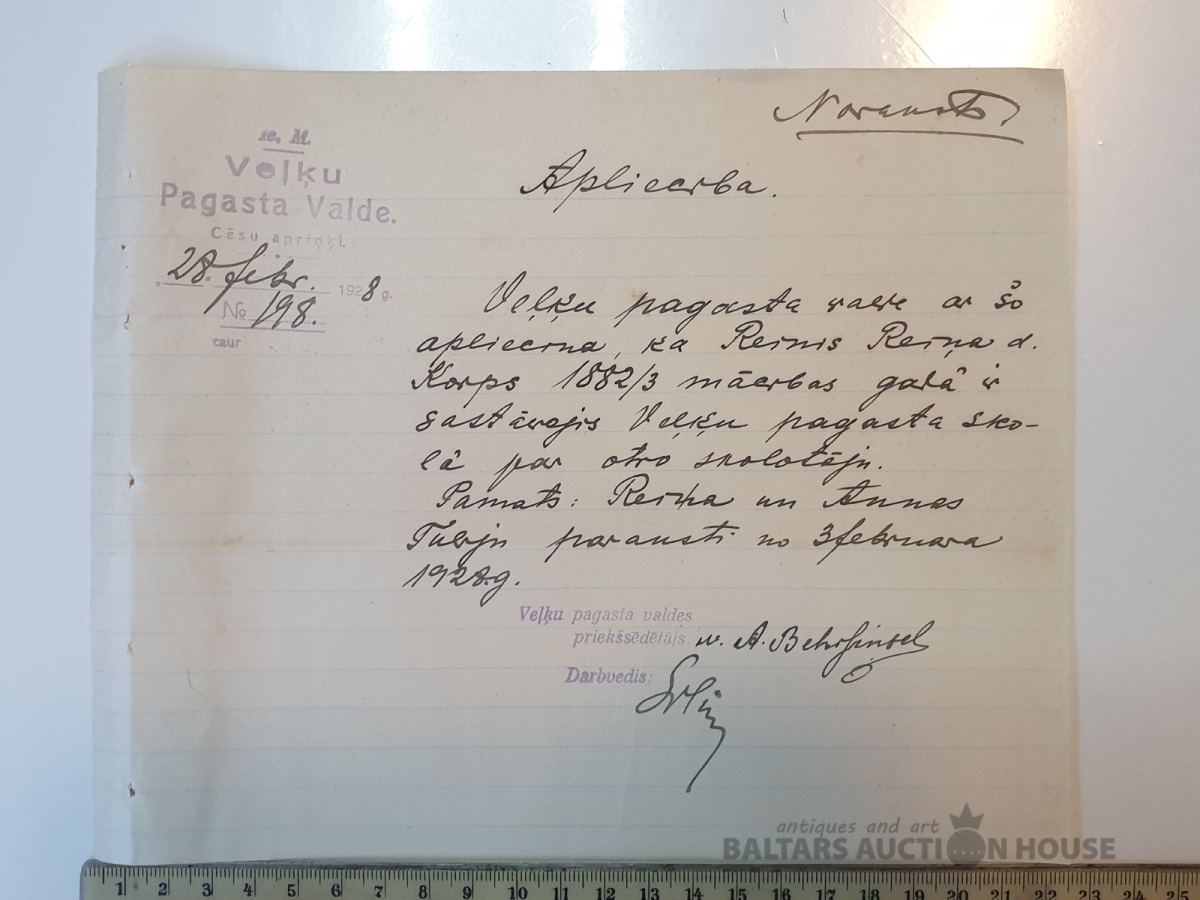 Noraksts.
Ie. M.
Veļķu
Pagasta Valde.
Cēsu apriņķī.
28. febr. 1928 g.
№ 198.
caur
Apliecība.
Veļķu pagasta valde ar šo
apliecina, ka Reinis Reiņa d.
Korps 1882/3 mācibas gadā ir
sastāvejis Veļķu pagasta sko-
lā par otro skolotēju.
Pamats: Reiņa un Annas
parausti no 3 februara
1928.g.
Veļķu pagasta valdes
priekšsēdētājs: w. A. Behrsinsel
Darbvedis:
antiques and art
BALTARS AUCTION HOUSE
1 2 3 4 5 6 7 8 9 10 11 12 13 14 15 16 17 18 19 20 21 22 23 24 25